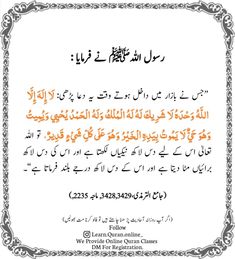 رسول اللہ ﷺ نے فرمایا :
”جس نے بازار میں داخل ہوتے وقت یہ دعا پڑھی: لَا إِلَهَ إِلَّا
اللَّهُ وَحْدَهُ لَا شَرِيكَ لَهُ لَهُ الْمُلْكُ وَلَهُ الْحَمْدُ يُحْيِي وَيُمِيتُ
وَهُوَ حَيٌّ لَا يَمُوتُ بِيَدِهِ الْخَيْرُ وَهُوَ عَلَى كُلِّ شَيْءٍ قَدِيرٌ. تو اللہ
تعالیٰ اس کے لیے دس لاکھ نیکیاں لکھتا ہے اور اس کی دس لاکھ
برائیاں مٹا دیتا ہے اور اس کے دس لاکھ درجے بلند فرماتا ہے“۔
(جامع الترمذی،3428,3429، ماجہ ،2235)
Follow
Learn.Quran.online_
We Provide Online Quran Classes
DM For Registration